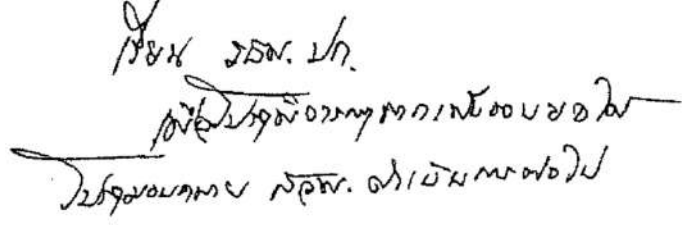 เรียน รธม. ปก.
เพื่อโปรดพิจารณา หากเห็นชอบขอได้
โปรดมอบหมาย สอพ. ดำเนินการต่อไป